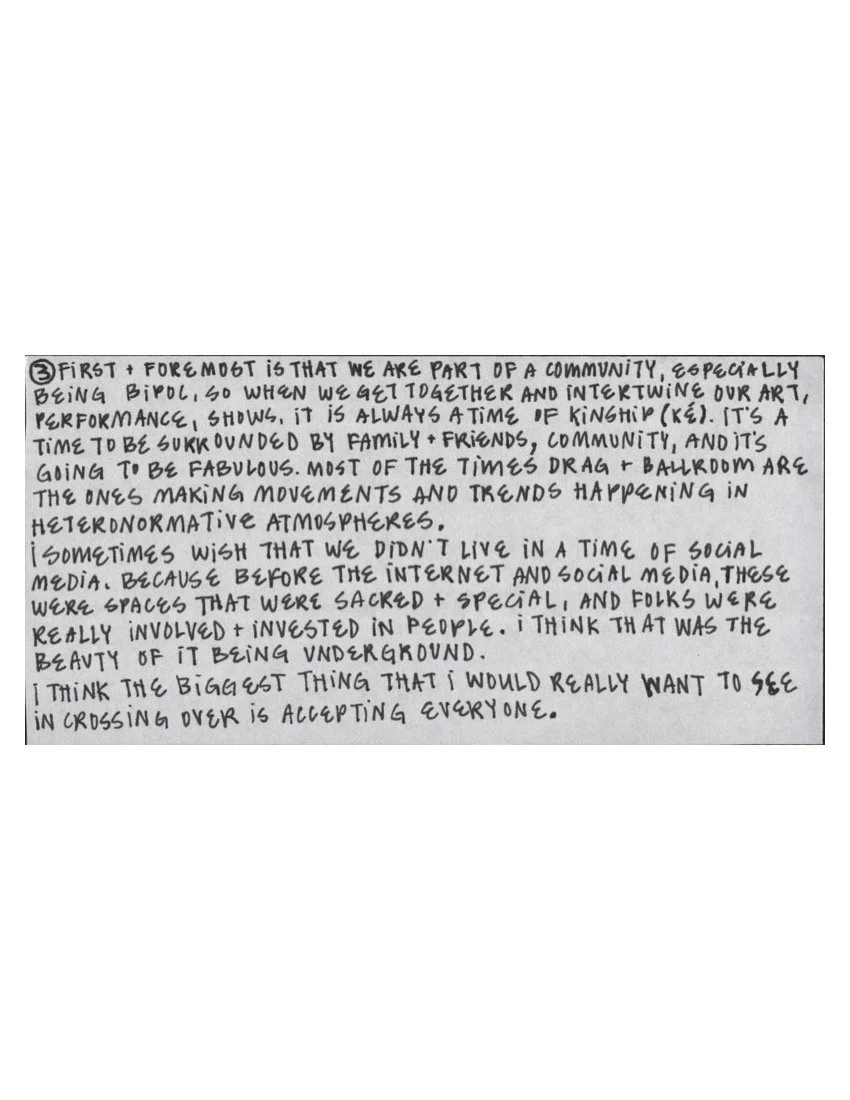 ③ FIRST + FOREMOST IS THAT WE ARE PART OF A COMMUNITY, ESPECIALLY
BEING BIPOC, SO WHEN WE GET TOGETHER AND INTERTWINE OUR ART,
PERFORMANCE, SHOWS. IT IS ALWAYS A TIME OF KINSHIP (KÉ). IT'S A
TIME TO BE SURROUNDED BY FAMILY + FRIENDS, COMMUNITY, AND IT'S
GOING TO BE FABULOUS. MOST OF THE TIMES DRAG + BALLROOM ARE
THE ONES MAKING MOVEMENTS AND TRENDS HAPPENING IN
HETERONORMATIVE ATMOSPHERES.
I SOMETIMES WISH THAT WE DIDN'T LIVE IN A TIME OF SOCIAL
MEDIA. BECAUSE BEFORE THE INTERNET AND SOCIAL MEDIA, THESE
WERE SPACES THAT WERE SACRED + SPECIAL, AND FOLKS WERE
REALLY INVOLVED + INVESTED IN PEOPLE. I THINK THAT WAS THE
BEAUTY OF IT BEING UNDERGROUND.
I THINK THE BIGGEST THING THAT I WOULD REALLY WANT TO SEE
IN CROSSING OVER IS ACCEPTING EVERYONE.